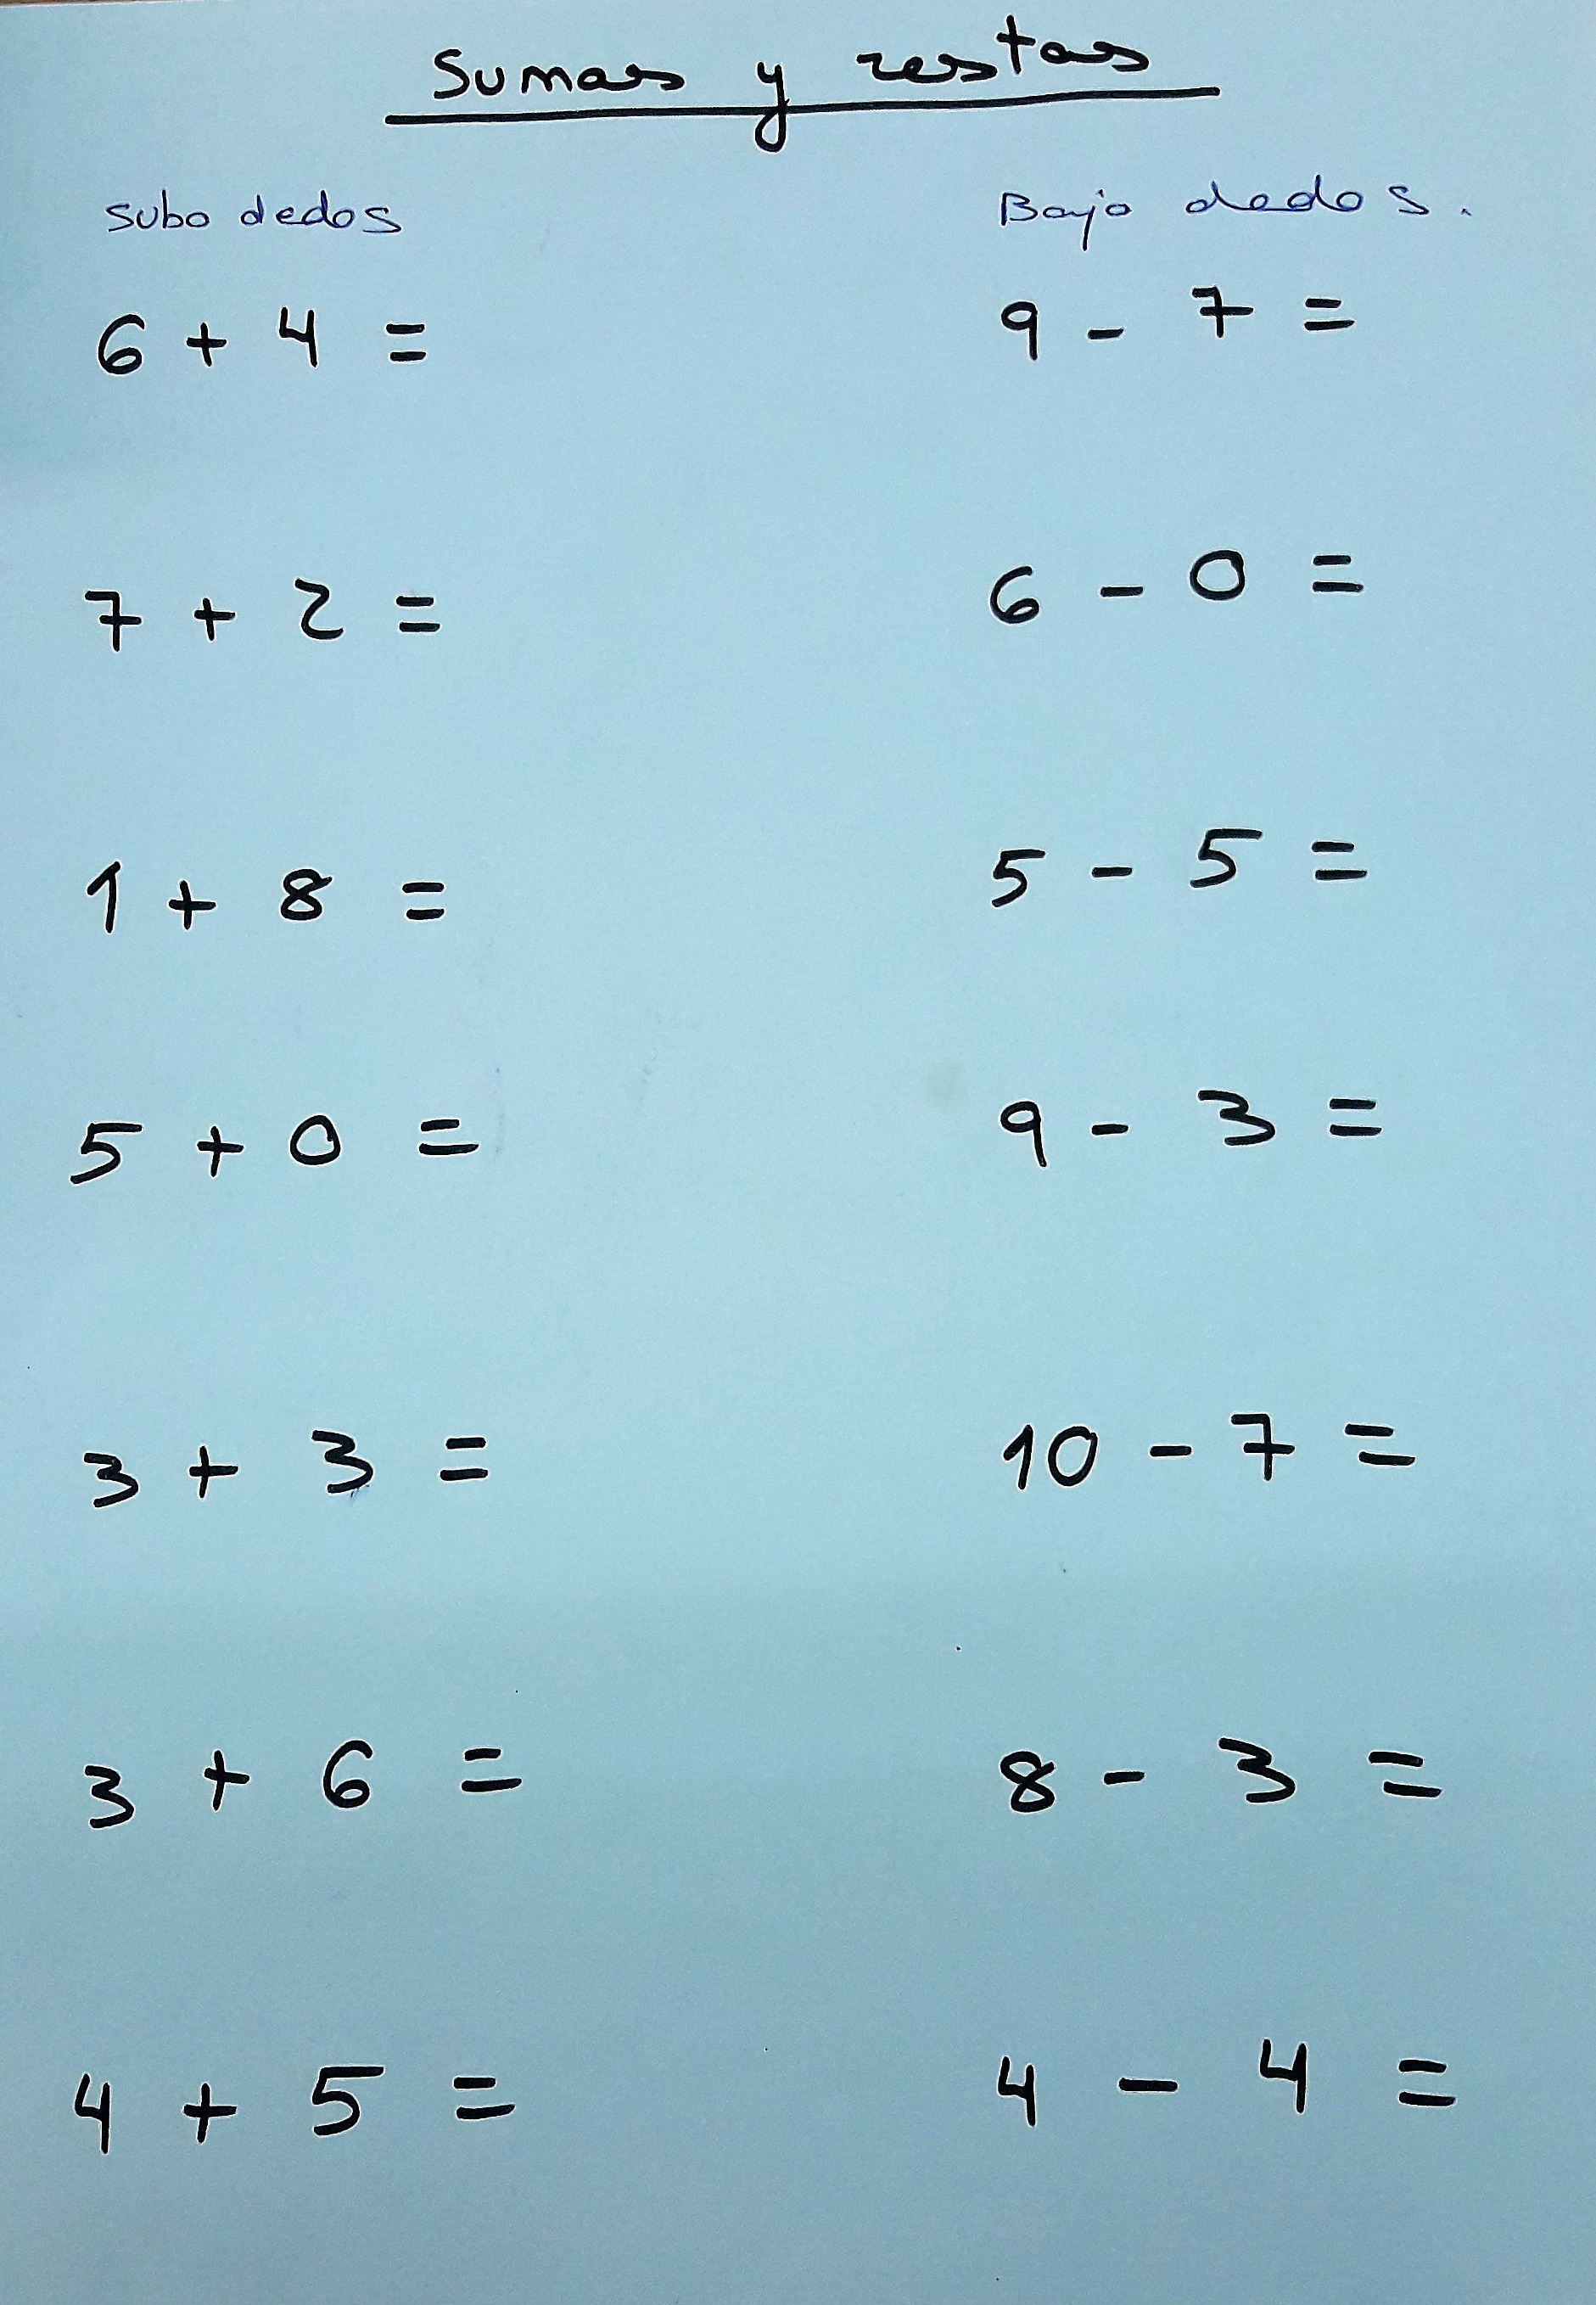 Sumas y restas
Subo dedos
Bajo dedos.
6 + 4 =
9 - 7 =
7 + 2 =
6 - 0 =
1 + 8 =
5 - 5 =
5 + 0 =
9 - 3 =
3 + 3 =
10 - 7 =
3 + 6 =
8 - 3 =
4 + 5 =
4 - 4 =